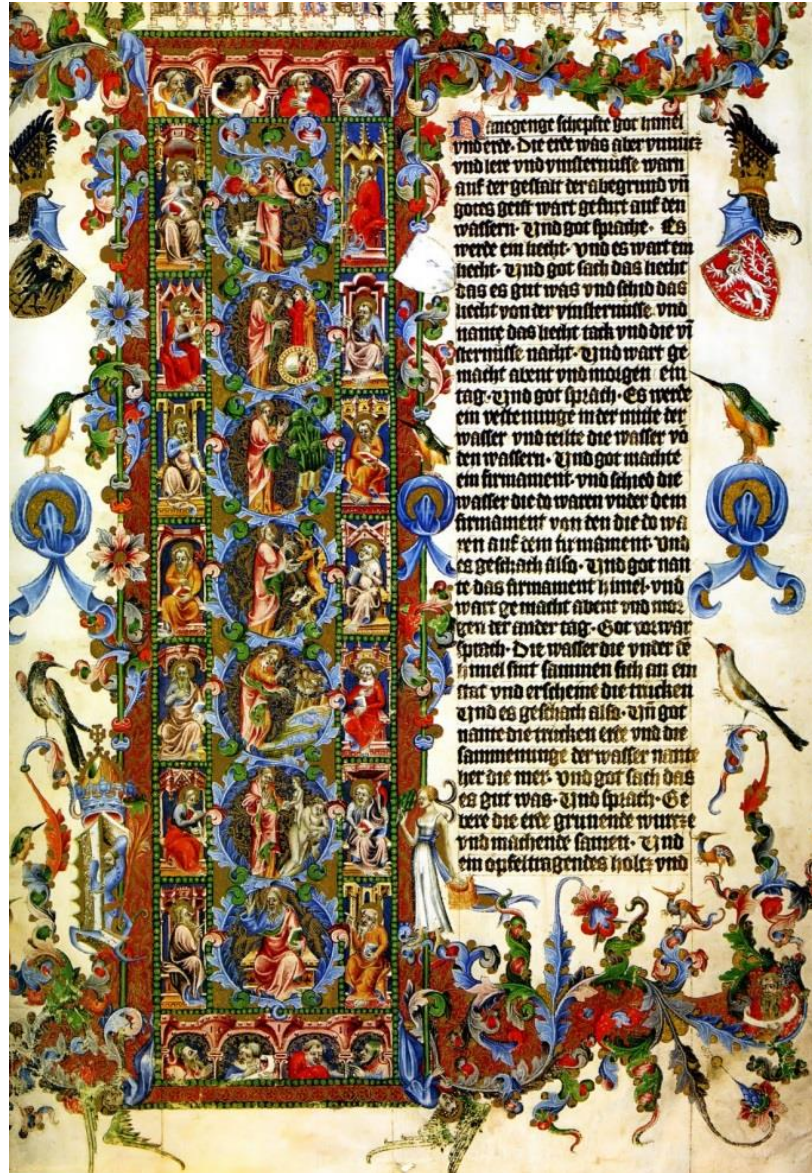 N anegenge schepfte got himel
vnd erde · Die erde was aber vnnucz
vnd lere vnd vinsternisse warn
auf der gestalt der abegrund vn̄
gotes geist wart gefurt auf den
wassern · Vnd got sprache · Es
werde ein liecht · vnd es wart ein
liecht · Vnd got sach das liecht
das es gut was vnd schid das
liecht von der vinsternisse vnd
nante das liecht tack vnd die vī
sternisse nacht · Vnd wart ge
macht abent vnd morgen ein
tag · Vnd got sprach · Es werde
ein vestenunge in der mitte der
wasser vnd teilte die wasser vō
den wassern · Vnd got machte
ein firmament · vnd schied die
wasser die do waren vnder dem
firmament von den die do wa
ren auf dem firmament · vnd
es geschach also · Vnd got nan
te das firmament himel · vnd
wart gemacht abent vnd mor
gen der ander tag · Got vorwar
sprach · Die wasser die vnder dē
himel sint sammen sich an ein
stat vnd erscheine die trucken
Vnd es geschach also · Vn̄ got
nante die trucken erde vnd die
sammenunge der wasser nante
her die mer · vnd got sach das
es gut was · Vnd sprach · Ge
bere die erde grunende wurcze
vnd machende samen · Vnd
ein opfeltragendes holcz vnd